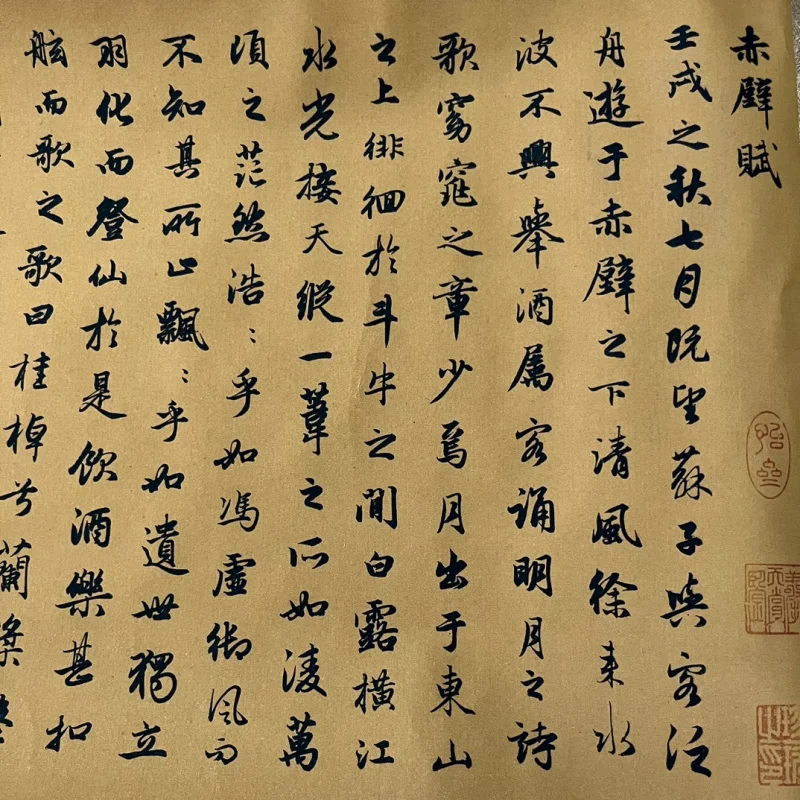 赤壁賦
壬戌之秋七月既望蘇子與客泛
舟遊于赤壁之下清風徐来水
波不興舉酒属客誦明月之詩
歌窈窕之章少焉月出于東山
之上徘徊於斗牛之間白露横江
水光接天縱一葦之所如凌萬
頃之茫然浩:乎如馮虚御風而
不知其所止飄:乎如遺世獨立
羽化而登仙於是飲酒樂甚扣
舷而歌之歌曰桂棹兮蘭槳